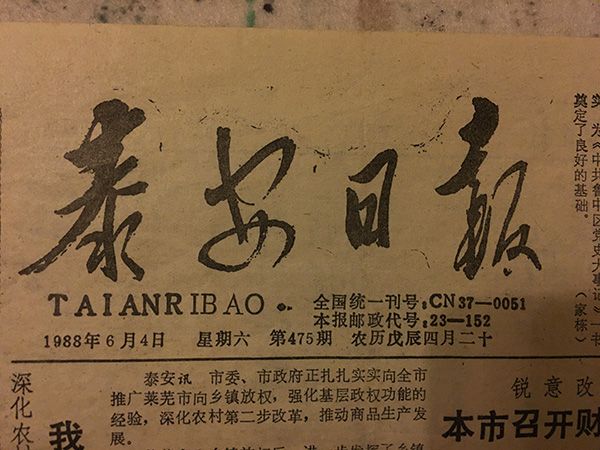 泰安日报
TAIANRIBAO.
全国统一刊号:CN37—0051
本报邮政代号:23—152
1988年6月4日 星期六 第475期 农历戊辰四月二十
实,为《中共鲁中区党史大事记》一书
奠定了良好的基础。
(家栋)
泰安讯 市委、市政府正扎扎实实向全市
推广莱芜市向乡镇放权,强化基层政权功能的
经验,深化农村第二步改革,推动商品生产发
展。
深化农村
我
锐意改
本市召开财